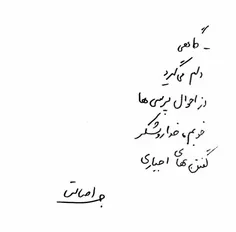 - گاهی
دلم می‌گیرد
از احوال پرسی ها
خوبم، خدا رو شکر
گفتن های اجباری